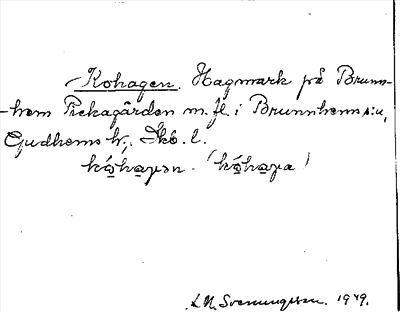 Kohagen. Hagmark på Brunn-
-hem Piekagården m. fl. i Brunnhems s:n,
Gudhems h., Skb. l.
kóhaɡən. (kóhaɡa)
S. N. Svenungsson. 1949.